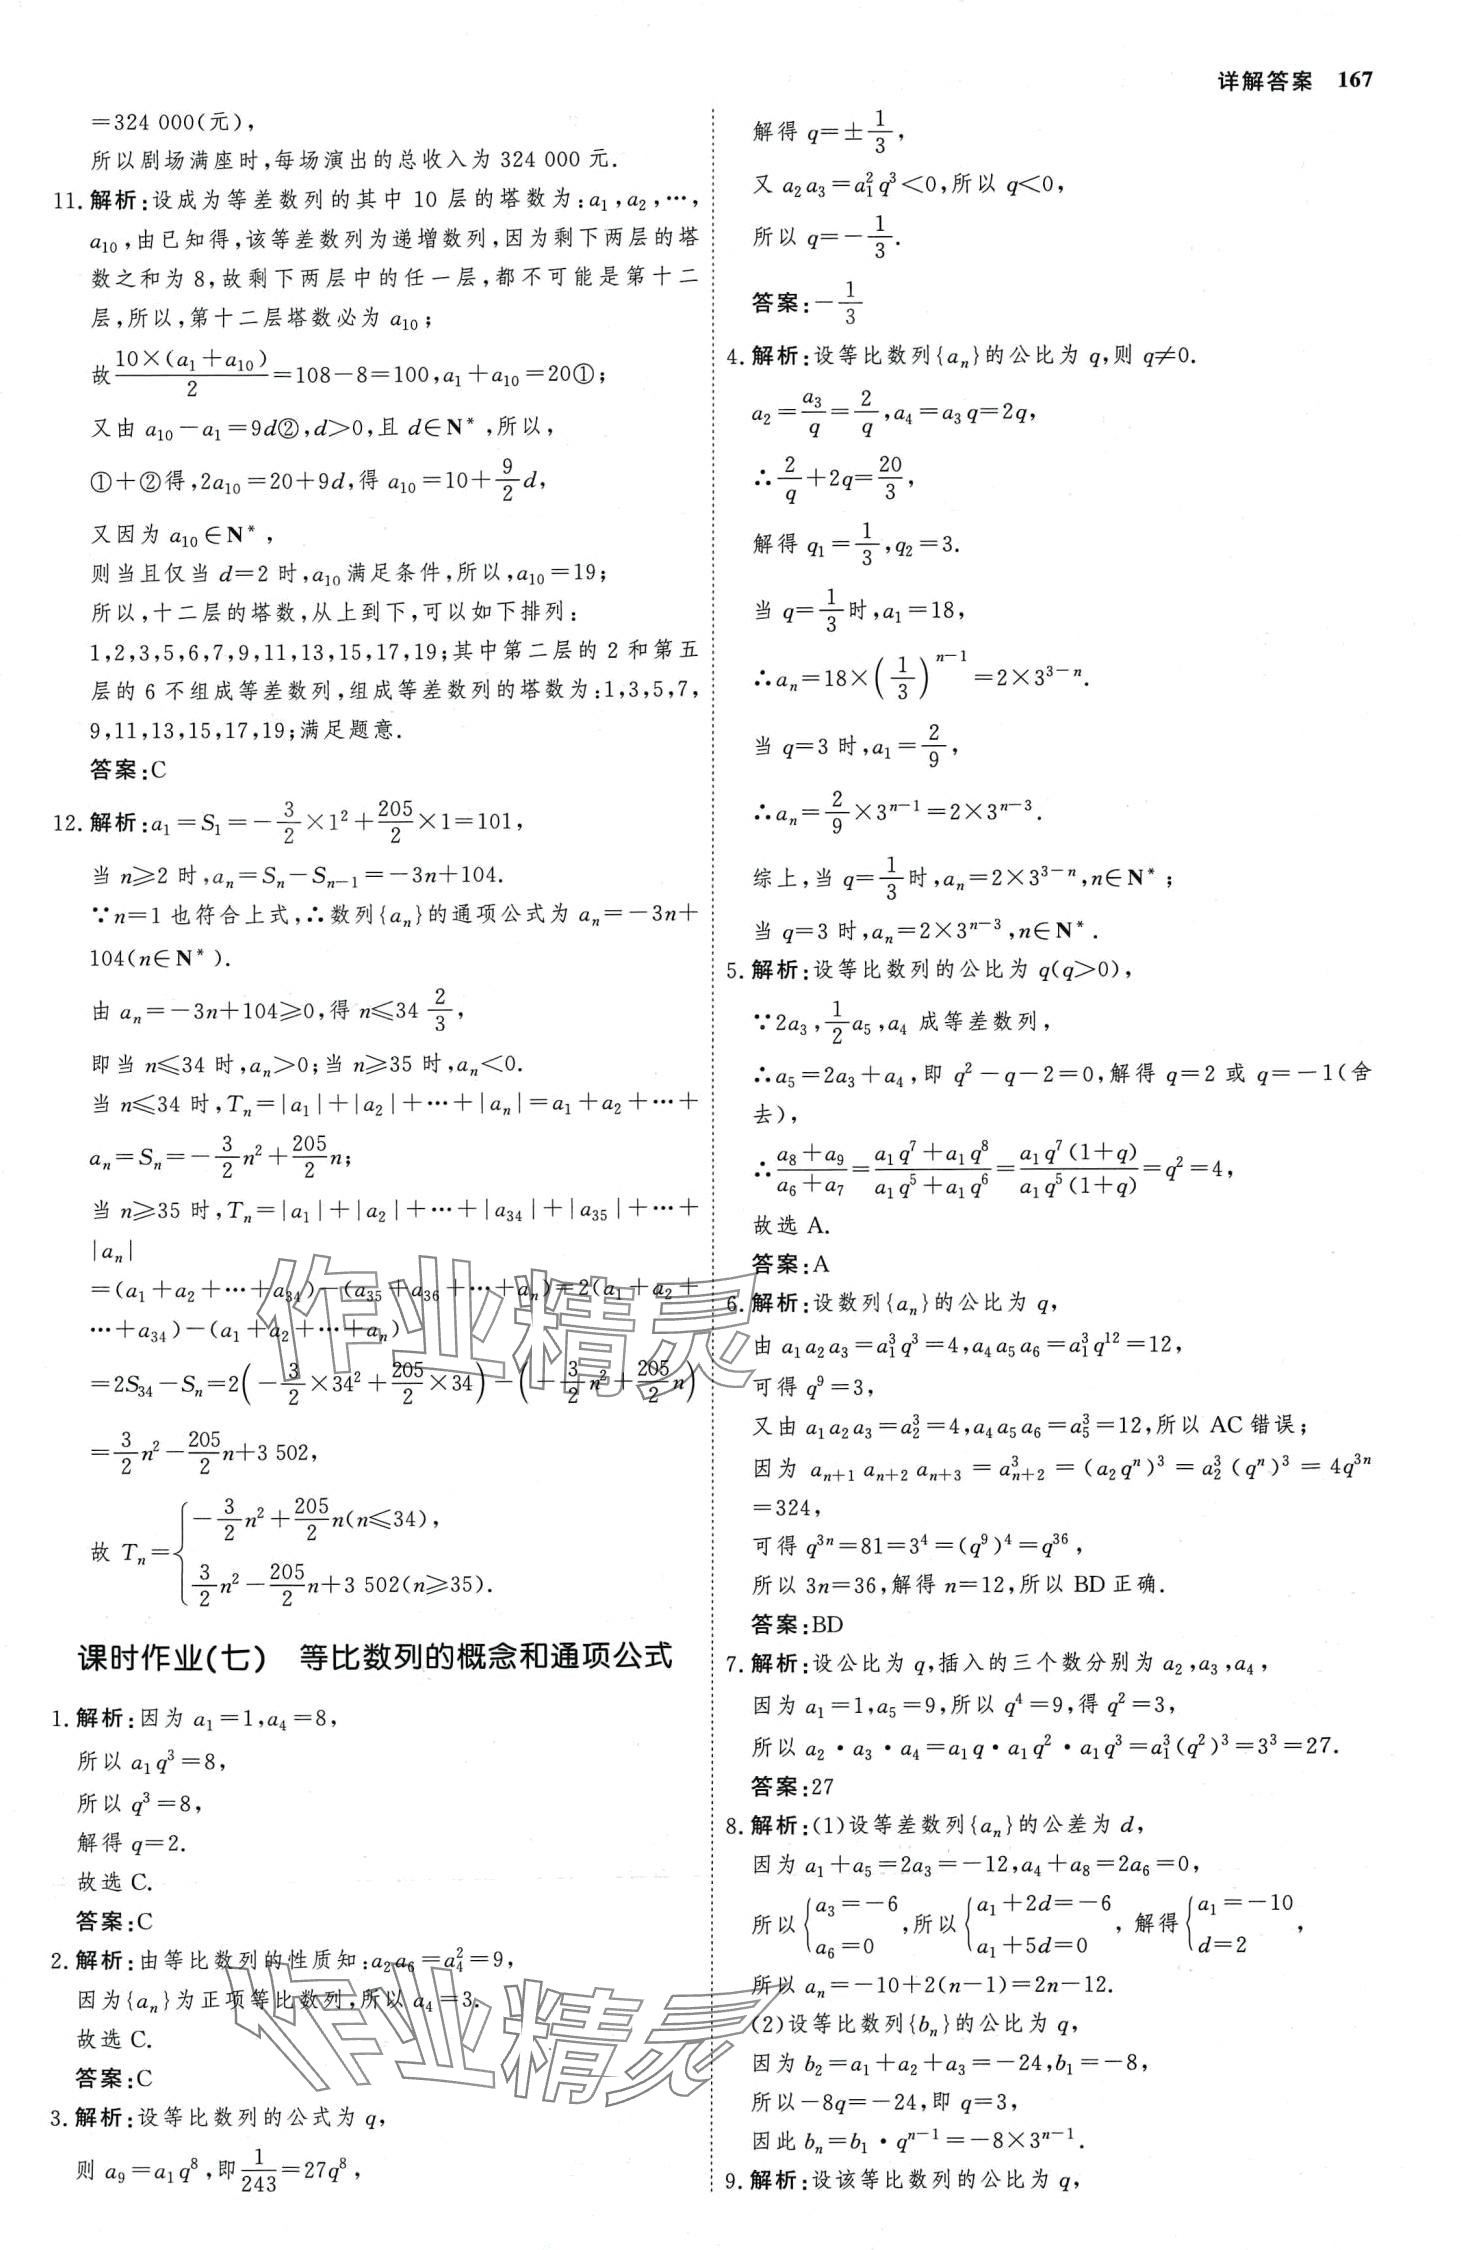 详解答案 167
=324 000(元),
所以剧场满座时,每场演出的总收入为 324 000 元.
11. 解析:设成为等差数列的其中 10 层的塔数为:a₁,a₂,…,
a₁₀,由已知得,该等差数列为递增数列,因为剩下两层的塔
数之和为 8,故剩下两层中的任一层,都不可能是第十二
层,所以,第十二层塔数必为 a₁₀;
故 \frac{10×(a₁+a₁₀)}{2}=108-8=100,a₁+a₁₀=20①;
又由 a₁₀-a₁=9d②,d>0,且 d∈N*,所以,
①+②得,2a₁₀=20+9d,得 a₁₀=10+\frac{9}{2}d,
又因为 a₁₀∈N*,
则当且仅当 d=2 时,a₁₀满足条件,所以,a₁₀=19;
所以,十二层的塔数,从上到下,可以如下排列:
1,2,3,5,6,7,9,11,13,15,17,19;其中第二层的 2 和第五
层的 6 不组成等差数列,组成等差数列的塔数为:1,3,5,7,
9,11,13,15,17,19;满足题意.
答案:C
12. 解析:a₁=S₁=-\frac{3}{2}×1²+\frac{205}{2}×1=101,
当 n≥2 时,aₙ=Sₙ-Sₙ₋₁=-3n+104.
∵n=1 也符合上式,∴数列{aₙ}的通项公式为 aₙ=-3n+
104(n∈N*).
由 aₙ=-3n+104≥0,得 n≤34\frac{2}{3},
即当 n≤34 时,aₙ>0;当 n≥35 时,aₙ<0.
当 n≤34 时,Tₙ=|a₁|+|a₂|+…+|aₙ|=a₁+a₂+…+
aₙ=Sₙ=-\frac{3}{2}n²+\frac{205}{2}n;
当 n≥35 时,Tₙ=|a₁|+|a₂|+…+|a₃₄|+|a₃₅|+…+
|aₙ|
=(a₁+a₂+…+a₃₄)-(a₃₅+a₃₆+…+aₙ)=2(a₁+a₂+
…+a₃₄)-(a₁+a₂+…+aₙ)
=2S₃₄-Sₙ=2(-\frac{3}{2}×34²+\frac{205}{2}×34)-(-\frac{3}{2}n²+\frac{205}{2}n)
=\frac{3}{2}n²-\frac{205}{2}n+3 502,
故 Tₙ={-\frac{3}{2}n²+\frac{205}{2}n(n≤34),
\frac{3}{2}n²-\frac{205}{2}n+3 502(n≥35).
课时作业(七) 等比数列的概念和通项公式
1. 解析:因为 a₁=1,a₄=8,
所以 a₁q³=8,
所以 q³=8,
解得 q=2.
故选 C.
答案:C
2. 解析:由等比数列的性质知:a₂a₆=a₄²=9,
因为{aₙ}为正项等比数列,所以 a₄=3.
故选 C.
答案:C
3. 解析:设等比数列的公式为 q,
则 a₉=a₁q⁸,即\frac{1}{243}=27q⁸,
解得 q=±\frac{1}{3},
又 a₂a₃=a₁²q³<0,所以 q<0,
所以 q=-\frac{1}{3}.
答案:-\frac{1}{3}
4. 解析:设等比数列{aₙ}的公比为 q,则 q≠0.
a₂=\frac{a₃}{q}=\frac{2}{q},a₄=a₃q=2q,
∴\frac{2}{q}+2q=\frac{20}{3},
解得 q₁=\frac{1}{3},q₂=3.
当 q=\frac{1}{3}时,a₁=18,
∴aₙ=18×(\frac{1}{3})ⁿ⁻¹=2×3³⁻ⁿ.
当 q=3 时,a₁=\frac{2}{9},
∴aₙ=\frac{2}{9}×3ⁿ⁻¹=2×3ⁿ⁻³.
综上,当 q=\frac{1}{3}时,aₙ=2×3³⁻ⁿ,n∈N*;
当 q=3 时,aₙ=2×3ⁿ⁻³,n∈N*.
5. 解析:设等比数列的公比为 q(q>0),
∵2a₃,\frac{1}{2}a₅,a₄ 成等差数列,
∴a₅=2a₃+a₄,即 q²-q-2=0,解得 q=2 或 q=-1(舍
去),
∴\frac{a₈+a₉}{a₆+a₇}=\frac{a₁q⁷+a₁q⁸}{a₁q⁵+a₁q⁶}=\frac{a₁q⁷(1+q)}{a₁q⁵(1+q)}=q²=4,
故选 A.
答案:A
6. 解析:设数列{aₙ}的公比为 q,
由 a₁a₂a₃=a₁³q³=4,a₄a₅a₆=a₁³q¹²=12,
可得 q⁹=3,
又由 a₁a₂a₃=a₂³=4,a₄a₅a₆=a₅³=12,所以 AC 错误;
因为 aₙ₊₁aₙ₊₂aₙ₊₃=aₙ₊₂³=(a₂qⁿ)³=a₂³(qⁿ)³=4q³ⁿ
=324,
可得 q³ⁿ=81=3⁴=(q⁹)⁴=q³⁶,
所以 3n=36,解得 n=12,所以 BD 正确.
答案:BD
7. 解析:设公比为 q,插入的三个数分别为 a₂,a₃,a₄,
因为 a₁=1,a₅=9,所以 q⁴=9,得 q²=3,
所以 a₂·a₃·a₄=a₁q·a₁q²·a₁q³=a₁³(q²)³=3³=27.
答案:27
8. 解析:(1)设等差数列{aₙ}的公差为 d,
因为 a₁+a₅=2a₃=-12,a₄+a₈=2a₆=0,
所以{a₃=-6 a₆=0,所以{a₁+2d=-6 a₁+5d=0,解得{a₁=-10 d=2,
所以 aₙ=-10+2(n-1)=2n-12.
(2)设等比数列{bₙ}的公比为 q,
因为 b₂=a₁+a₂+a₃=-24,b₁=-8,
所以-8q=-24,即 q=3,
因此 bₙ=b₁·qⁿ⁻¹=-8×3ⁿ⁻¹.
9. 解析:设该等比数列的公比为 q,
作业精灵
作业精灵